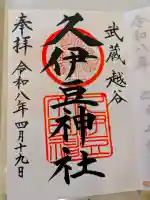 武蔵越谷
久伊豆神社
奉拝
令和八年四月十九日